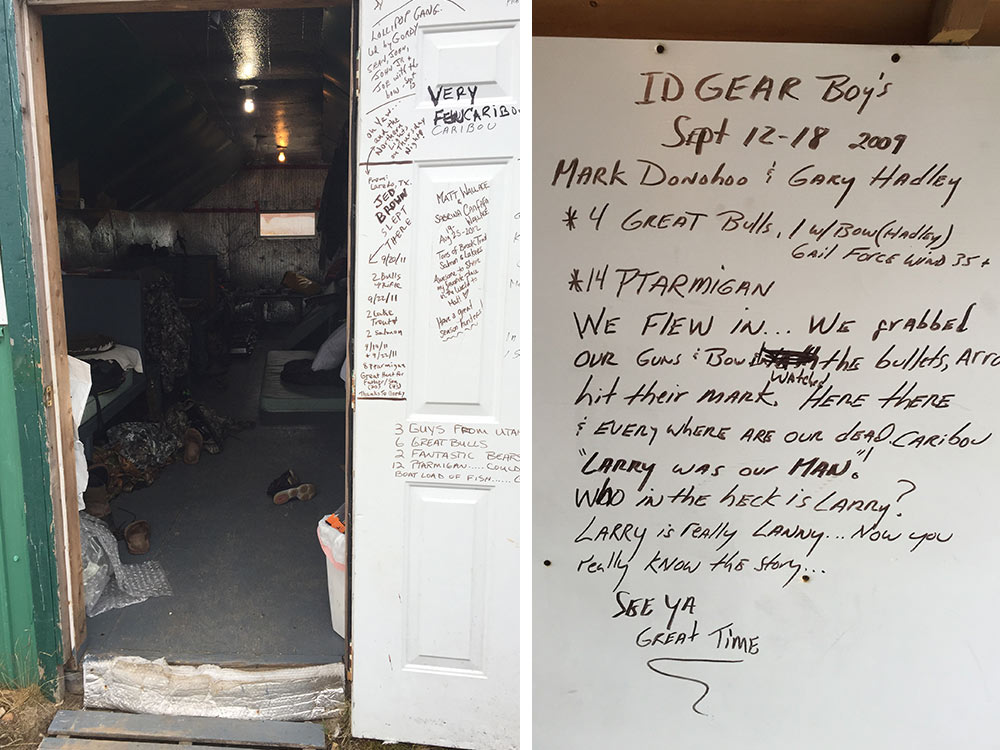 LOLLIPOP GANG
by GORDY
SEAN, JOHN,
JOHN JR &
JOE with the
bow - Sept
oh yew...
and the
Northern
Lights
on Thursday
Night!
VERY
FEW CARIBOU
CARIBOU
From:
Laredo, TX.
JED
BROWN
SLEPT
THERE
9/20/11
2 Bulls
w/Rifle
9/22/11
2 Lake
Trout
2 Salmon
9/23/11
8 Ptarmigan
Great Hunt for
Father/Son
Thanks to Gordy
MATT WALLACE
&
SABRINA
WALLACE
Aug 25 - 2012
Tons of Brook Trout
Salmon & Lakers
Awesome to share
my favorite place
in the world w/
Matt
Have a great
season hunters!
3 GUYS FROM UTAH
6 GREAT BULLS
2 FANTASTIC BEARS
12 PTARMIGAN.... COULD
BOAT LOAD OF FISH......
ID GEAR Boy's
Sept 12-18 2009
MARK DONOHOO & GARY HADLEY
*4 GREAT Bulls, 1 w/Bow (Hadley)
GAIL FORCE WIND 35+
*14 PTARMIGAN
WE FLEW IN... WE grabbed
OUR GUNS & Bow the bullets, Arro
Watched
hit their MARK. HERE THERE
& EVERYWHERE ARE OUR dEAD CARIBOU!
"LARRY WAS OUR MAN".
WHO IN the heck is LARRY?
LARRY is REAlly LANNY... NOW you
REAlly KNOW the story...
SEE YA
GREAT TIME